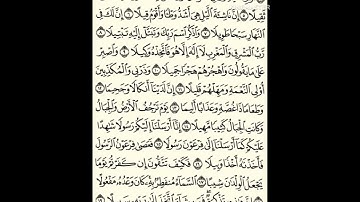 ثَقِيلًا ٥ إِنَّ نَاشِئَةَ ٱلَّيْلِ هِىَ أَشَدُّ وَطْـًٔا وَأَقْوَمُ قِيلًا ٦ إِنَّ لَكَ فِى
ٱلنَّهَارِ سَبْحًا طَوِيلًا ٧ وَٱذْكُرِ ٱسْمَ رَبِّكَ وَتَبَتَّلْ إِلَيْهِ تَبْتِيلًا ٨
رَّبُّ ٱلْمَشْرِقِ وَٱلْمَغْرِبِ لَآ إِلَٰهَ إِلَّا هُوَ فَٱتَّخِذْهُ وَكِيلًا ٩ وَٱصْبِرْ
عَلَىٰ مَا يَقُولُونَ وَٱهْجُرْهُمْ هَجْرًا جَمِيلًا ١٠ وَذَرْنِى وَٱلْمُكَذِّبِينَ
أُو۟لِى ٱلنَّعْمَةِ وَمَهِّلْهُمْ قَلِيلًا ١١ إِنَّ لَدَيْنَآ أَنكَالًا وَجَحِيمًا ١٢
وَطَعَامًا ذَا غُصَّةٍ وَعَذَابًا أَلِيمًا ١٣ يَوْمَ تَرْجُفُ ٱلْأَرْضُ وَٱلْجِبَالُ
وَكَانَتِ ٱلْجِبَالُ كَثِيبًا مَّهِيلًا ١٤ إِنَّآ أَرْسَلْنَآ إِلَيْكُمْ رَسُولًا شَٰهِدًا
عَلَيْكُمْ كَمَآ أَرْسَلْنَآ إِلَىٰ فِرْعَوْنَ رَسُولًا ١٥ فَعَصَىٰ فِرْعَوْنُ ٱلرَّسُولَ
فَأَخَذْنَٰهُ أَخْذًا وَبِيلًا ١٦ فَكَيْفَ تَتَّقُونَ إِن كَفَرْتُمْ يَوْمًا
يَجْعَلُ ٱلْوِلْدَٰنَ شِيبًا ١٧ ٱلسَّمَآءُ مُنفَطِرٌۢ بِهِۦ كَانَ وَعْدُهُۥ مَفْعُولًا ١٨
إِنَّ هَٰذِهِۦ تَذْكِرَةٌ فَمَن شَآءَ ٱتَّخَذَ إِلَىٰ رَبِّهِۦ سَبِيلًا ١٩